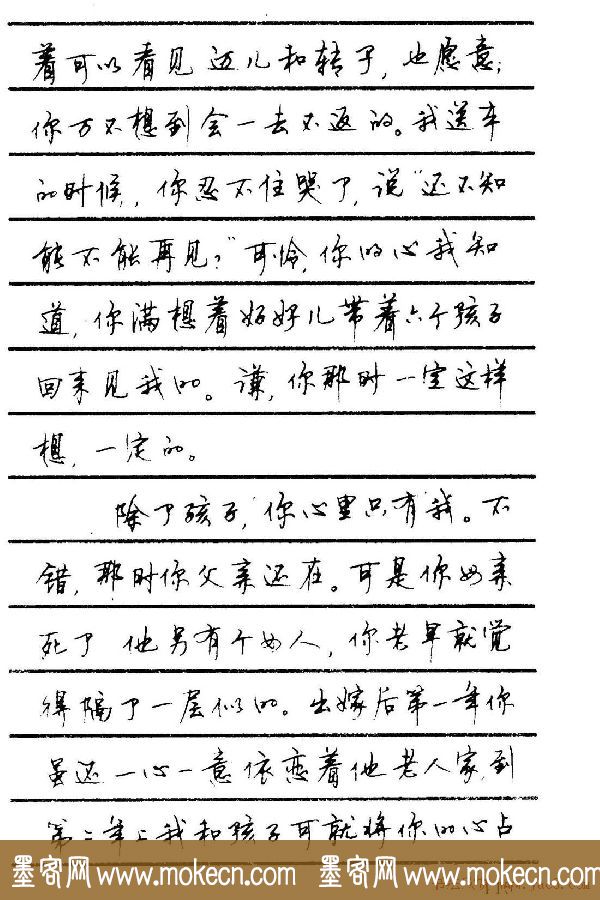 着可以看见迈儿和转子，也愿意；
你万不想到会一去不返的。我送车
的时候，你忍不住哭了，说“还不知
能不能再见？”可怜，你的心我知
道，你满想着好好儿带着六个孩子
回来见我的。谦，你那时一定这样
想，一定的。
除了孩子，你心里只有我。不
错，那时你父亲还在。可是你母亲
死了 他另有个女人，你老早就觉
得隔了一层似的。出嫁后第一年你
虽还一心一意依恋着他老人家，到
第二年上我和孩子可就将你的心占
墨客网 www.mokecn.com 墨客网 www.mokecn.com